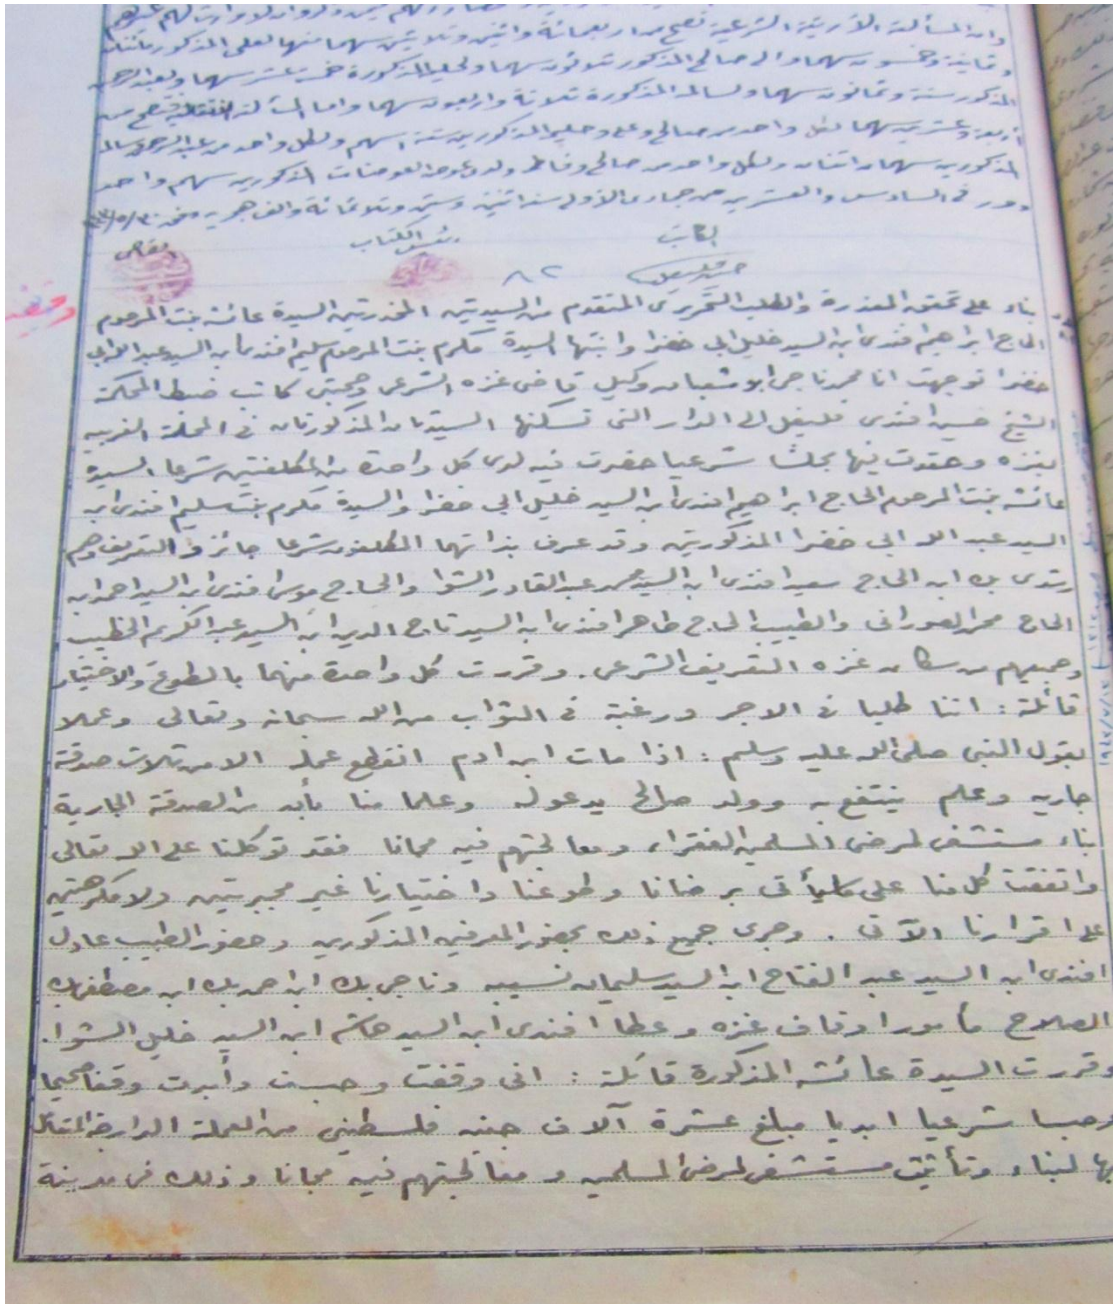 وان المسألة الارثية الشرعية تصح من اربعمائة واثنين وثلاثين سهما منها لعلي المذكور مائتان
وثمانية وخمسون سهما والى صالح المذكور ثلاثون سهما ولحليمة المذكورة خمسة عشر سهما ولعبد الرحمن
المذكور ستة وثمانون سهما ولسالمه المذكورة ثلاثة واربعون سهما واما المسألة الانتقالية فتصح من
أربعة وعشرين سهما لكل واحد من صالح وعلي وحليمه المذكورين ستة اسهم ولكل واحد من عبد الرحمن وسالمه
المذكورين سهمان اثنان ولكل واحد من صالح وفاطمه المذكورين سهم واحد
في السادس والعشرين من جمادى الاولى سنة اثنتين وستين وثلاثمائة والف هجريه
الكاتب رئيس الكتاب القاضي
٨٢
بناء على تحقق المعذرة والطلب التحريري المتقدم من السيدتين المخدرتين السيدة عائشه بنت المرحوم
الحاج ابراهيم افندي ابن السيد خليل ابي خضرا وابنتها السيدة مكرم بنت المرحوم سليم افندي ابن السيد عبد الله ابي
خضرا توجهت انا محمد ناجي ابو شعبان وكيل قاضي غزه الشرعي وصحبتي كاتب ضبط المحكمة
الشيخ حسين افندي فليفل الى الدار التي تسكنها السيدتان المذكورتان في المحلة الغربيه
بغزه وعقدت فيها مجلسا شرعيا حضرت فيه لدي كل واحدة من المكلفتين شرعا السيدة
عائشه بنت المرحوم الحاج ابراهيم افندي ابن السيد خليل ابي خضرا والسيدة مكرم بنت سليم افندي ابن
السيد عبد الله ابي خضرا المذكورتين وقد عرف بذاتهما المكلفون شرعا جائزو التعريف وهم
رشدي بك ابن الحاج سعيد افندي ابن السيد محمد عبد القادر الشوا والحاج موسى افندي ابن السيد احمد ابن
الحاج محمد الصوراني والطبيب الحاج طاهر افندي ابن السيد تاج الدين ابن السيد عبد الكريم الخطيب
وجميعهم من سكان غزه التعريف الشرعي. وقررت كل واحدة منهما بالطوع والاختيار
قائلة: اننا طلبا في الاجر ورغبة في الثواب من الله سبحانه وتعالى وعملا
بقول النبي صلى الله عليه وسلم: اذا مات ابن ادم انقطع عمله الا من ثلاث صدقة
جاريه وعلم ينتفع به وولد صالح يدعو له وعلما منا بأن من الصدقة الجارية
بناء مستشفى لمرضى المسلمين الفقراء ومعالجتهم فيه مجانا فقد توكلنا على الله تعالى
واتفقت كل منا على ما يأتي برضانا وطوعنا واختيارنا غير مجبرتين ولا مكرهتين
على اقرارنا الآتي. وجرى جميع ذلك بحضور المعرفين المذكورين وحضور الطبيب عادل
افندي ابن السيد عبد الفتاح ابن السيد سليمان نسيبه وناجي بك ابن احمد بك ابن مصطفى بك
الصلاح مأمور اوقاف غزه وعطا افندي ابن السيد هاشم ابن السيد خليل الشوا.
وقررت السيدة عائشه المذكورة قائلة: اني وقفت وحبست وأبدت وقفا صحيحا
وحبسا شرعيا ابديا مبلغ عشرة آلاف جنيه فلسطيني من العملة الدارجة المتعامل
بها لبناء وتأثيث مستشفى لمرضى المسلمين ومعالجتهم فيه مجانا وذلك في مدينة